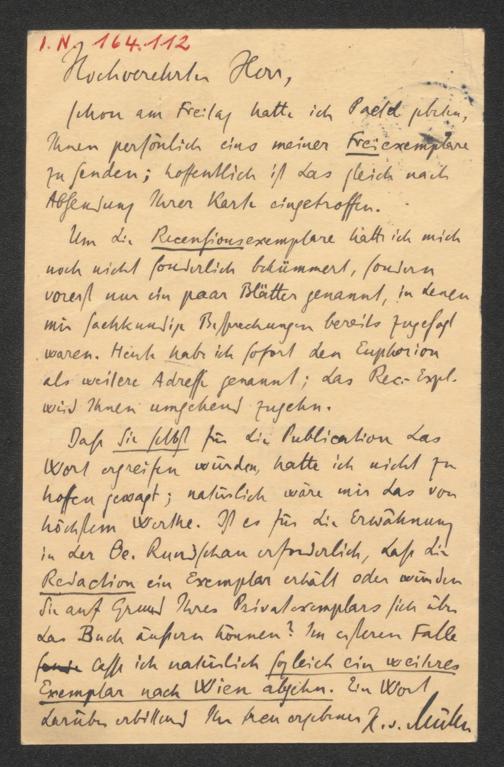 I. N. 164.112
Hochverehrter Herr,
schon am Freitag hatte ich Paetel gebeten,
Ihnen persönlich eins meiner Freiexemplare
zu senden; hoffentlich ist das gleich nach
Absendung Ihrer Karte eingetroffen.
Um die Recensionsexemplare hatte ich mich
noch nicht sonderlich bekümmert, sondern
vorerst nur ein paar Blätter genannt, in denen
mir sachkundige Besprechungen bereits zugesagt
waren. Heute habe ich sofort den Euphorion
als weitere Adresse genannt; das Rec.-Expl.
wird Ihnen umgehend zugehn.
Daß Sie selbst für die Publication das
Wort ergreifen würden, hatte ich nicht zu
hoffen gewagt; natürlich wäre mir das von
höchstem Werthe. Ist es für die Erwähnung
in der Oe. Rundschau erforderlich, daß die
Redaction ein Exemplar erhält oder würden
Sie auf Grund Ihres Privatexemplars sich über
das Buch äußern können? Im ersteren Falle
lasse ich natürlich sogleich ein weiteres
Exemplar nach Wien abgehn. Ein Wort
darüber erbittend Ihr treu ergebener H. v. Müller